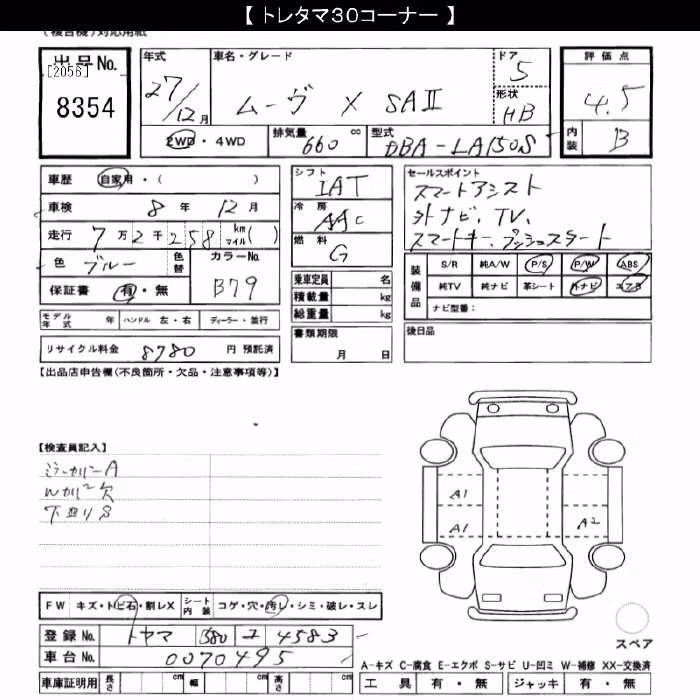 【 トレタマ30コーナー 】
(複合機)対応用紙
出品No.
[2056]
8354
年式
27/12月
車名・グレード
ムーヴ X SAⅡ
ドア
5
形状
HB
評価点
4.5
内装
B
2WD ・ 4WD
排気量
660 cc
型式
DBA-LA150S
車歴 自家用・( )
車検 8年 12月
走行 7万2千258 km マイル( )
色 ブルー 色替
カラーNo.
B79
保証書 有・無
シフト
IAT
冷房
AAC
燃料
G
セールスポイント
スマートアシスト
外ナビ、TV、
スマートキー、プッシュスタート
乗車定員 名
積載量 kg
総重量 kg
書類期限
月 日
装備品
S/R 純A/W P/S P/W ABS
純TV 純ナビ 革シート 外ナビ エアB
ナビ型番:
後日品
モデル年式 年 ハンドル 左・右 ディーラー・並行
リサイクル料金 8780 円 預託済
【出品店申告欄(不良箇所・欠品・注意事項等)】
【検査員記入】
A
欠
下
A1
A1
A2
スペア
FW キズ・トビ石・割レX シート内装 コゲ・穴・汚レ・シミ・破レ・スレ
登録No. トヤマ 580 ユ 4583
車台No. 0070495
車庫証明用 長さ cm 幅 cm 高さ cm
A-キズ C-腐食 E-エクボ S-サビ U-凹ミ W-補修 XX-交換済
工具 有・無 ジャッキ 有・無